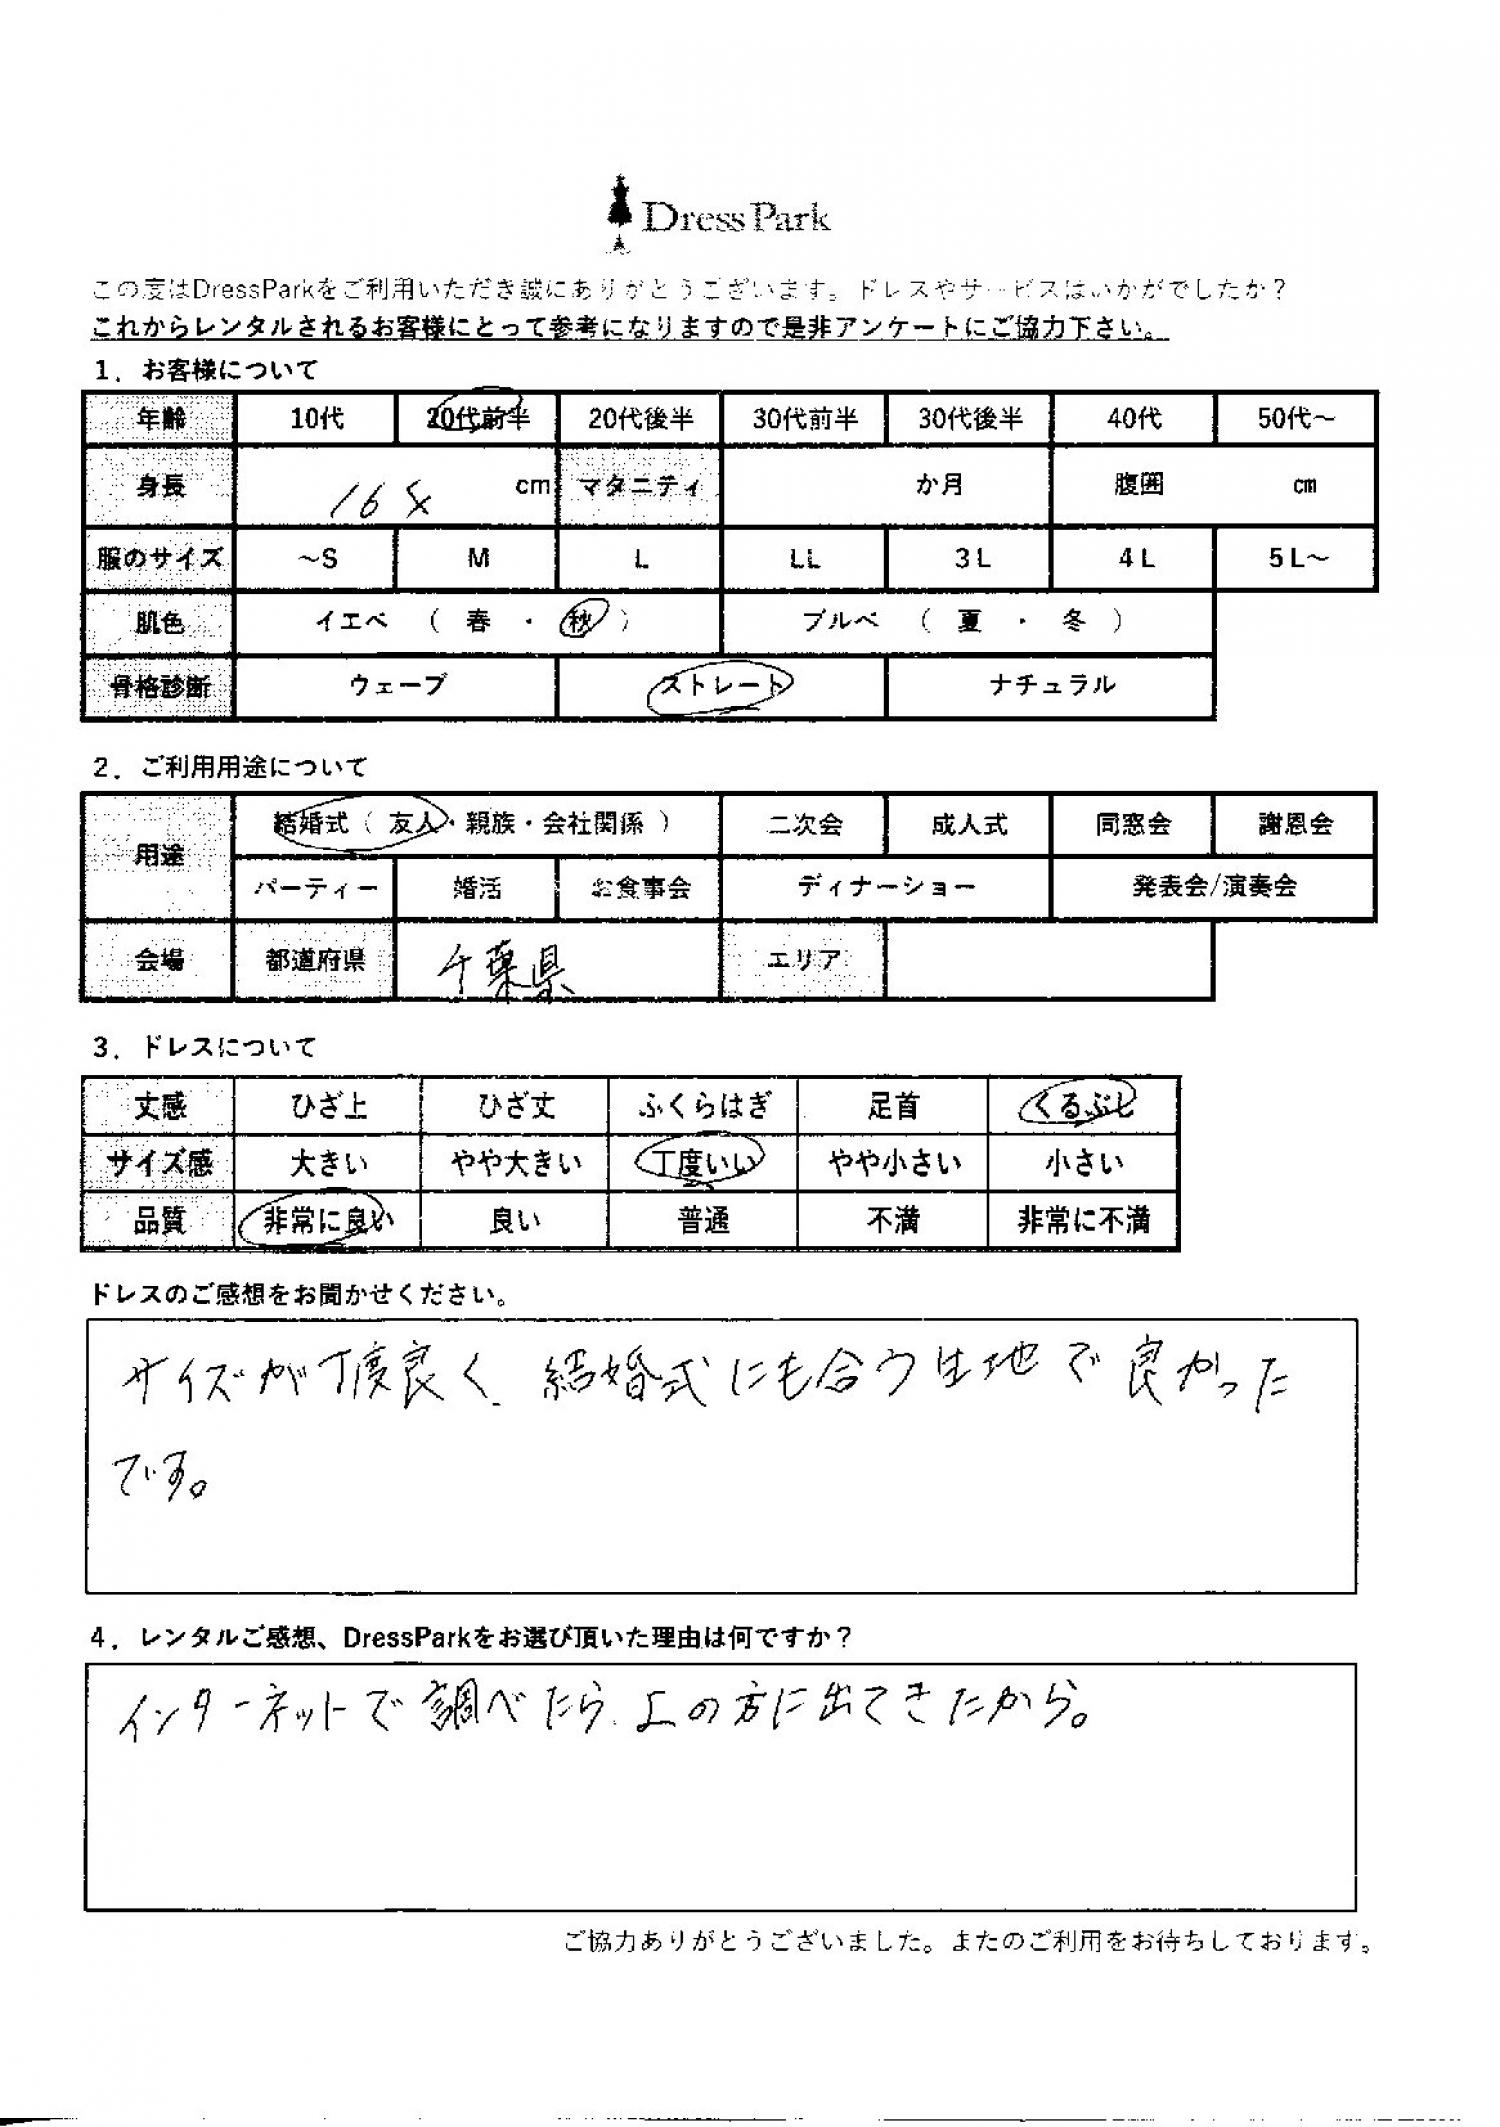 DressPark
この度はDressParkをご利用いただき誠にありがとうございます。ドレスやサービスはいかがでしたか？
これからレンタルされるお客様にとって参考になりますので是非アンケートにご協力下さい。
1．お客様について
年齢 10代 20代前半 20代後半 30代前半 30代後半 40代 50代～
身長 cm マタニティ か月 腹囲 cm
服のサイズ ～S M L LL 3L 4L 5L～
肌色 イエベ（ 春 ・ 秋 ） ブルベ（ 夏 ・ 冬 ）
骨格診断 ウェーブ ストレート ナチュラル
2．ご利用用途について
用途 結婚式（ 友人・親族・会社関係 ） 二次会 成人式 同窓会 謝恩会
パーティー 婚活 お食事会 ディナーショー 発表会/演奏会
会場 都道府県 千葉県 エリア
3．ドレスについて
丈感 ひざ上 ひざ丈 ふくらはぎ 足首 くるぶし
サイズ感 大きい やや大きい 丁度いい やや小さい 小さい
品質 非常に良い 良い 普通 不満 非常に不満
ドレスのご感想をお聞かせください。
サイズが丁度良く、結婚式にも合う生地で良かった
です。
4．レンタルご感想、DressParkをお選び頂いた理由は何ですか？
インターネットで調べたら、上の方に出てきたから。
ご協力ありがとうございました。またのご利用をお待ちしております。